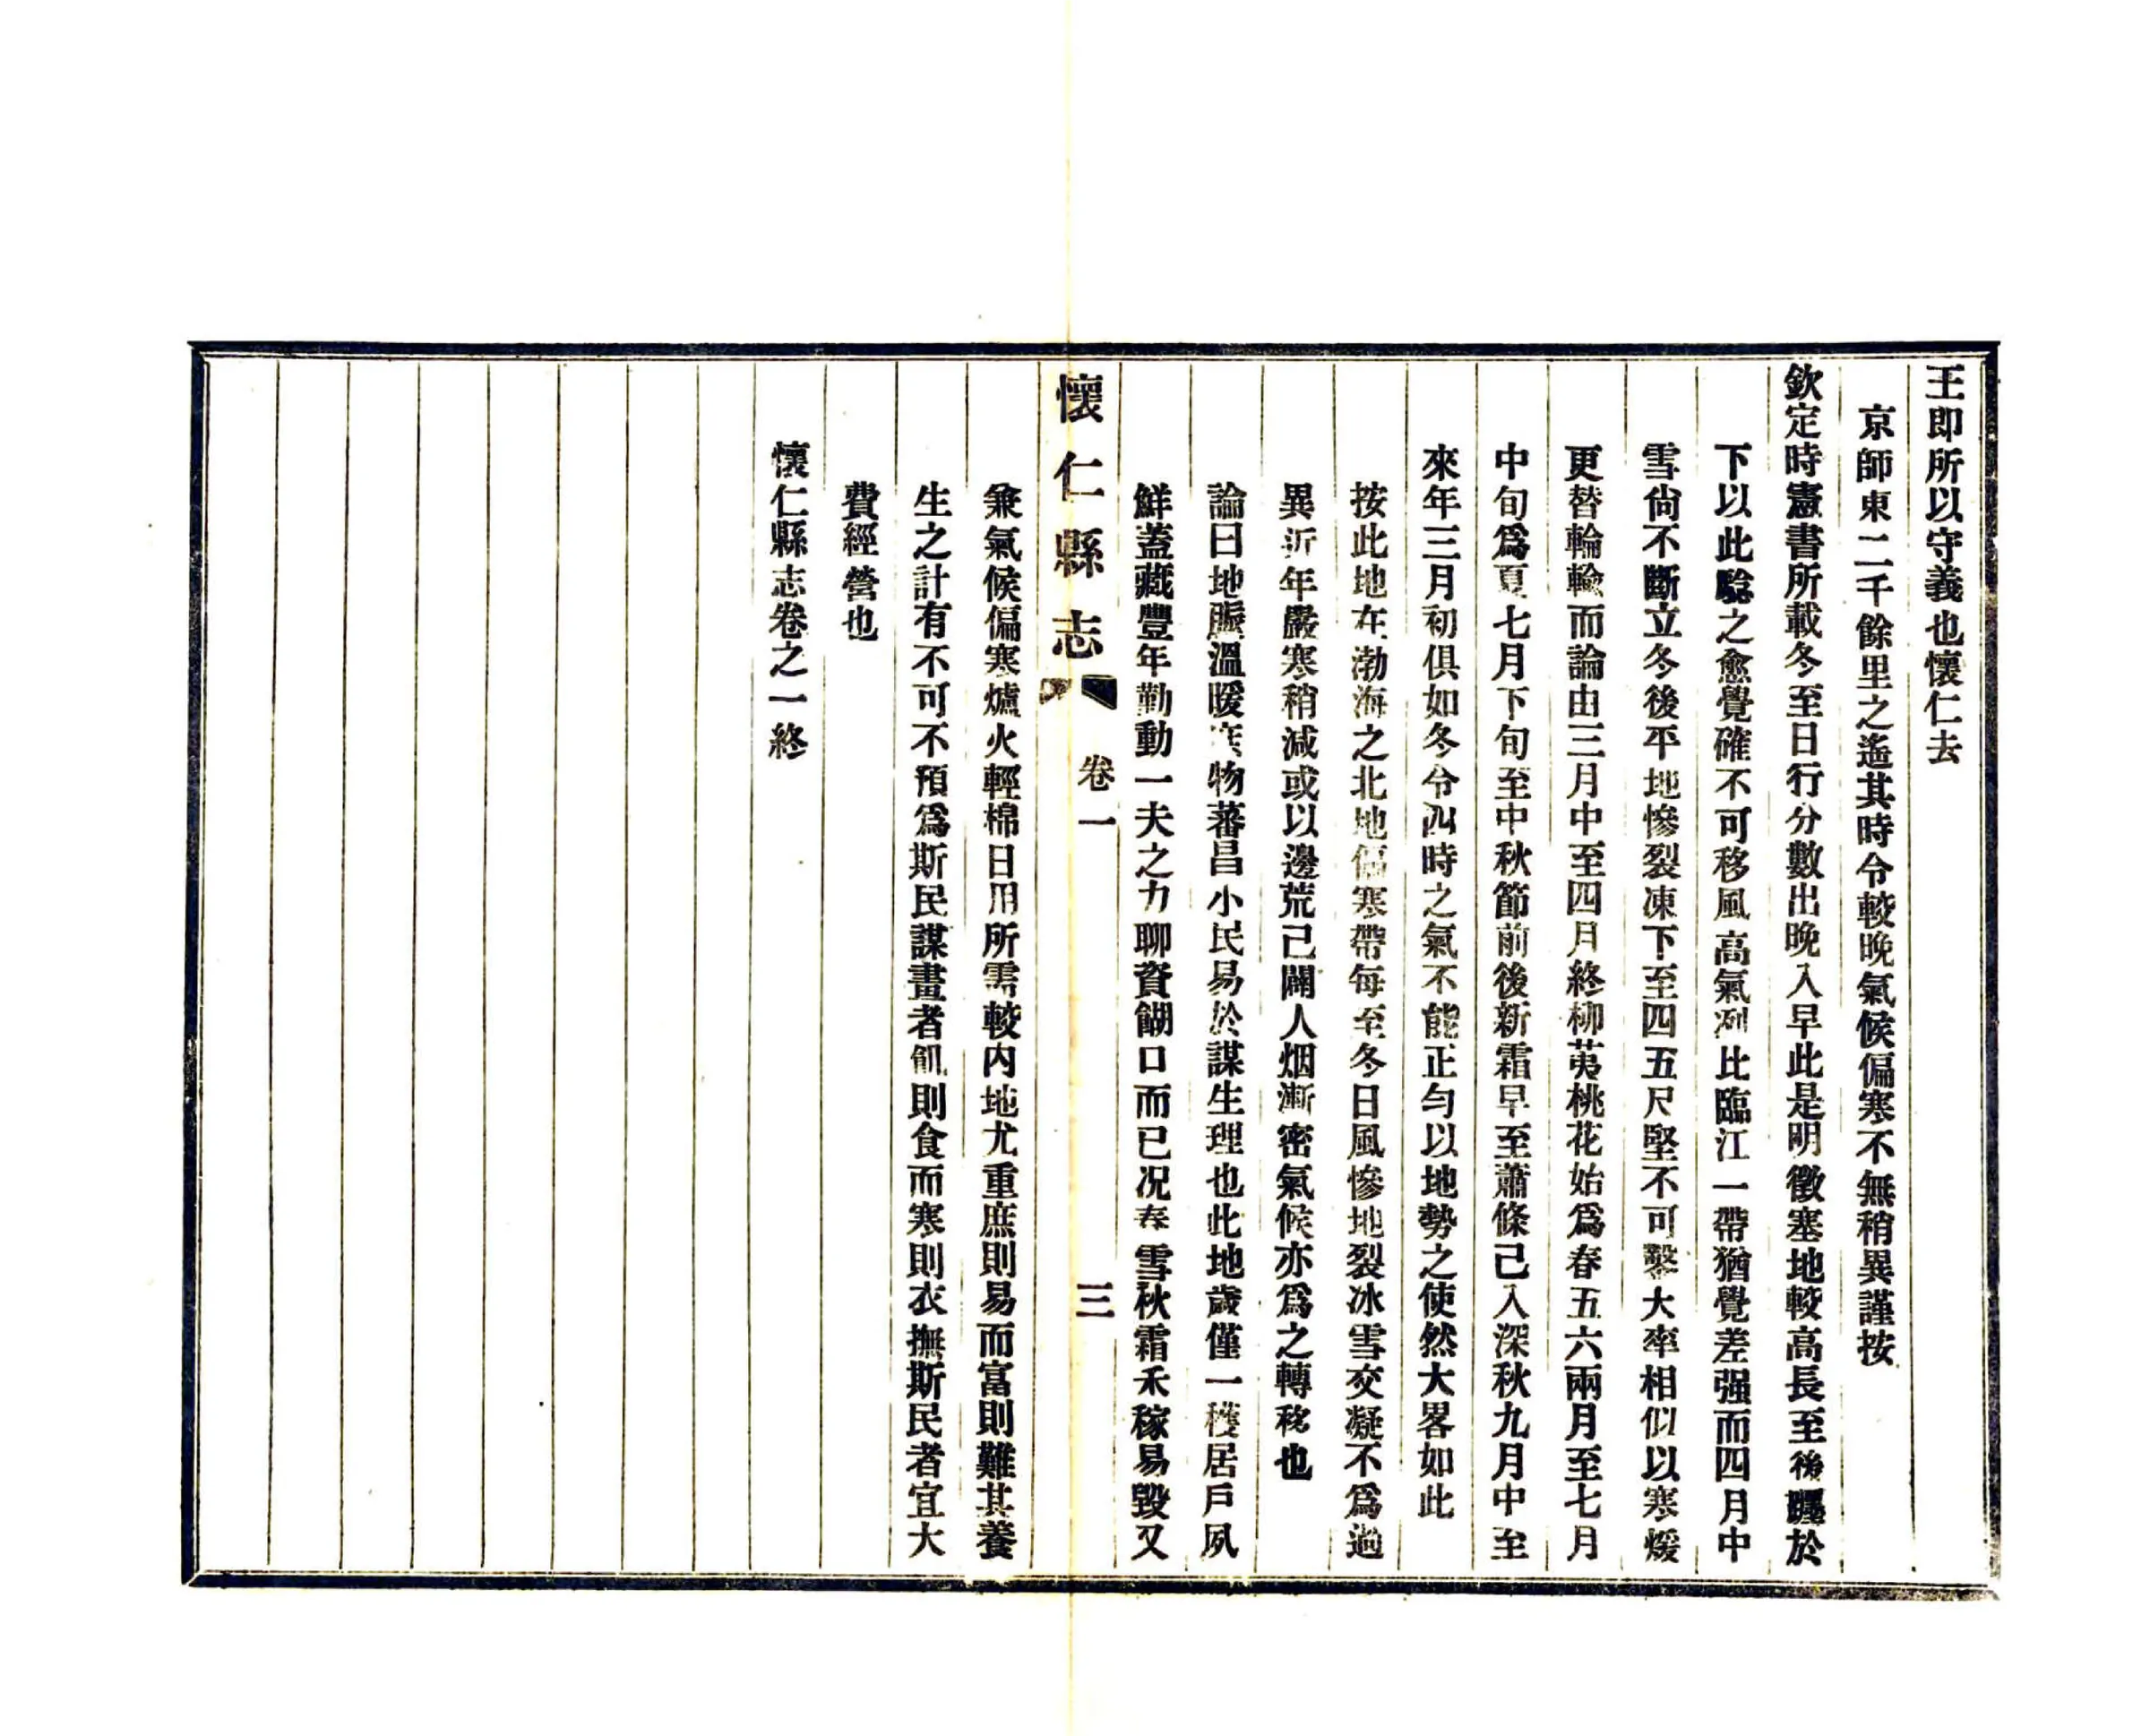 王即所以守義也懷仁去
京師東二千餘里之遙其時令較晚氣候偏寒不無稍異謹按
欽定時憲書所載冬至日行分數出晚入早此是明徵塞地較高長至後曬於
下以此驗之愈覺確不可移風高氣冽比臨江一帶猶覺差强而四月中
雪尙不斷立冬後平地慘裂凍下至四五尺堅不可鑿大率相似以寒煖
更替輪輸而論由三月中至四月終柳荑桃花始爲春五六兩月至七月
中旬爲夏七月下旬至中秋節前後新霜早至蕭條己入深秋九月中至
來年三月初俱如冬令四時之氣不能正匀以地勢之使然大畧如此
按此地在渤海之北地偏寒帶每至冬日風慘地裂冰雪交凝不爲過
異近年嚴寒稍減或以邊荒己闢人烟漸密氣候亦爲之轉移也
論曰地脈溫暖庶物蕃昌小民易於謀生理也此地歲僅一穫居戶夙
鮮蓋藏豐年勤動一夫之力聊資餬口而已况春雪秋霜禾稼易毀又
懷仁縣志 卷一 三
兼氣候偏寒爐火輕棉日用所需較內地尤重庶則易而富則難其養
生之計有不可不預爲斯民謀畫者飢則食而寒則衣撫斯民者宜大
費經營也
懷仁縣志卷之一終